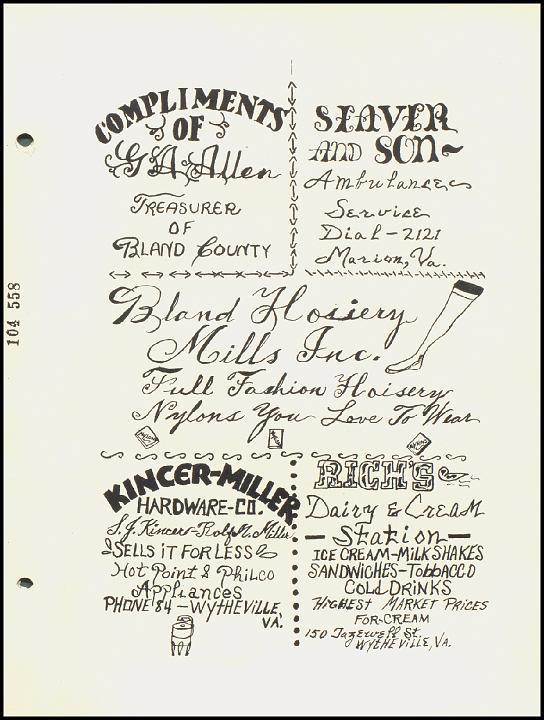 COMPLIMENTS
OF
G A Allen
TREASURER
OF
BLAND COUNTY
SEAVER
AND SON~
Ambulance
Service
Dial-2121
Marion, Va.
104 558
Bland Hosiery
Mills Inc.
Full Fashion Hoisery
Nylons You Love To Wear
KINCER-MILLER
HARDWARE-CO.
S.J. Kincer-Rolf H. Miller
SELLS IT FOR LESS
Hot Point & PhiLCO
APPLIANCES
PHONE 84-WYTHEVILLE,
VA.
RICH'S
Dairy & CREAM
-Station-
ICE CREAM-MILK SHAKES
SANDWICHES-TOBBACCO
COLD DRINKS
HIGHEST MARKET PRICES
FOR-CREAM
150 Tazewell St.
WYTHEVILLE, VA.